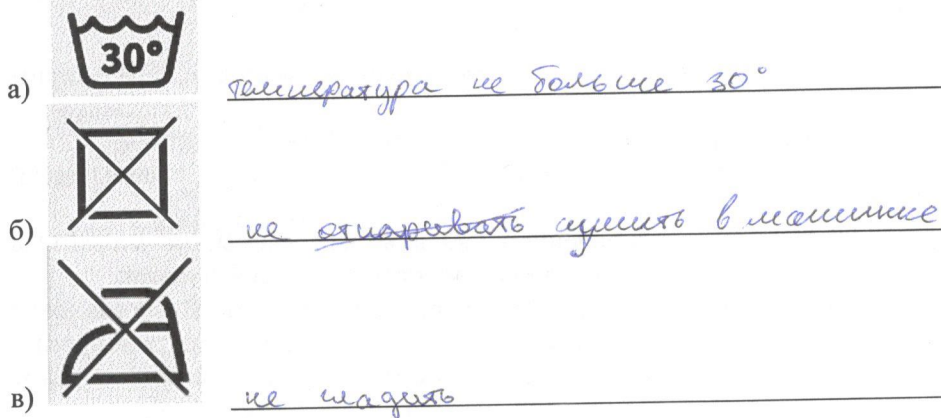 30°
а) температура не больше 30°
б) не отпаривать сушить в машинке
в) не гладить